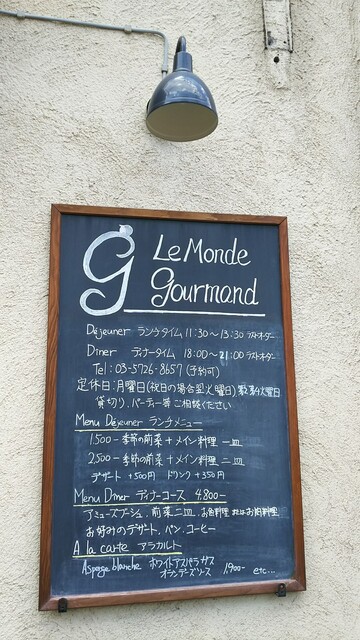 g
Le Monde
gourmand
Déjeuner ランチタイム 11:30〜13:30 ラストオーダー
Dîner ディナータイム 18:00〜21:00 ラストオーダー
Tel : 03-5726-8657 (予約可)
定休日:月曜日(祝日の場合翌火曜日) 第3火曜日
貸切り、パーティー等ご相談ください
Menu Déjeuner ランチメニュー
1,500- 季節の前菜 + メイン料理 一皿
2,500- 季節の前菜 + メイン料理 二皿
デザート +500円 ドリンク +350円
Menu Dîner ディナーコース 4800-
アミューズブーシュ、前菜二皿、お魚料理 またはお肉料理
お好みのデザート、パン、コーヒー
A la carte アラカルト
Asperge blanche ホワイトアスパラガス
オランデーズソース 1,900- etc...